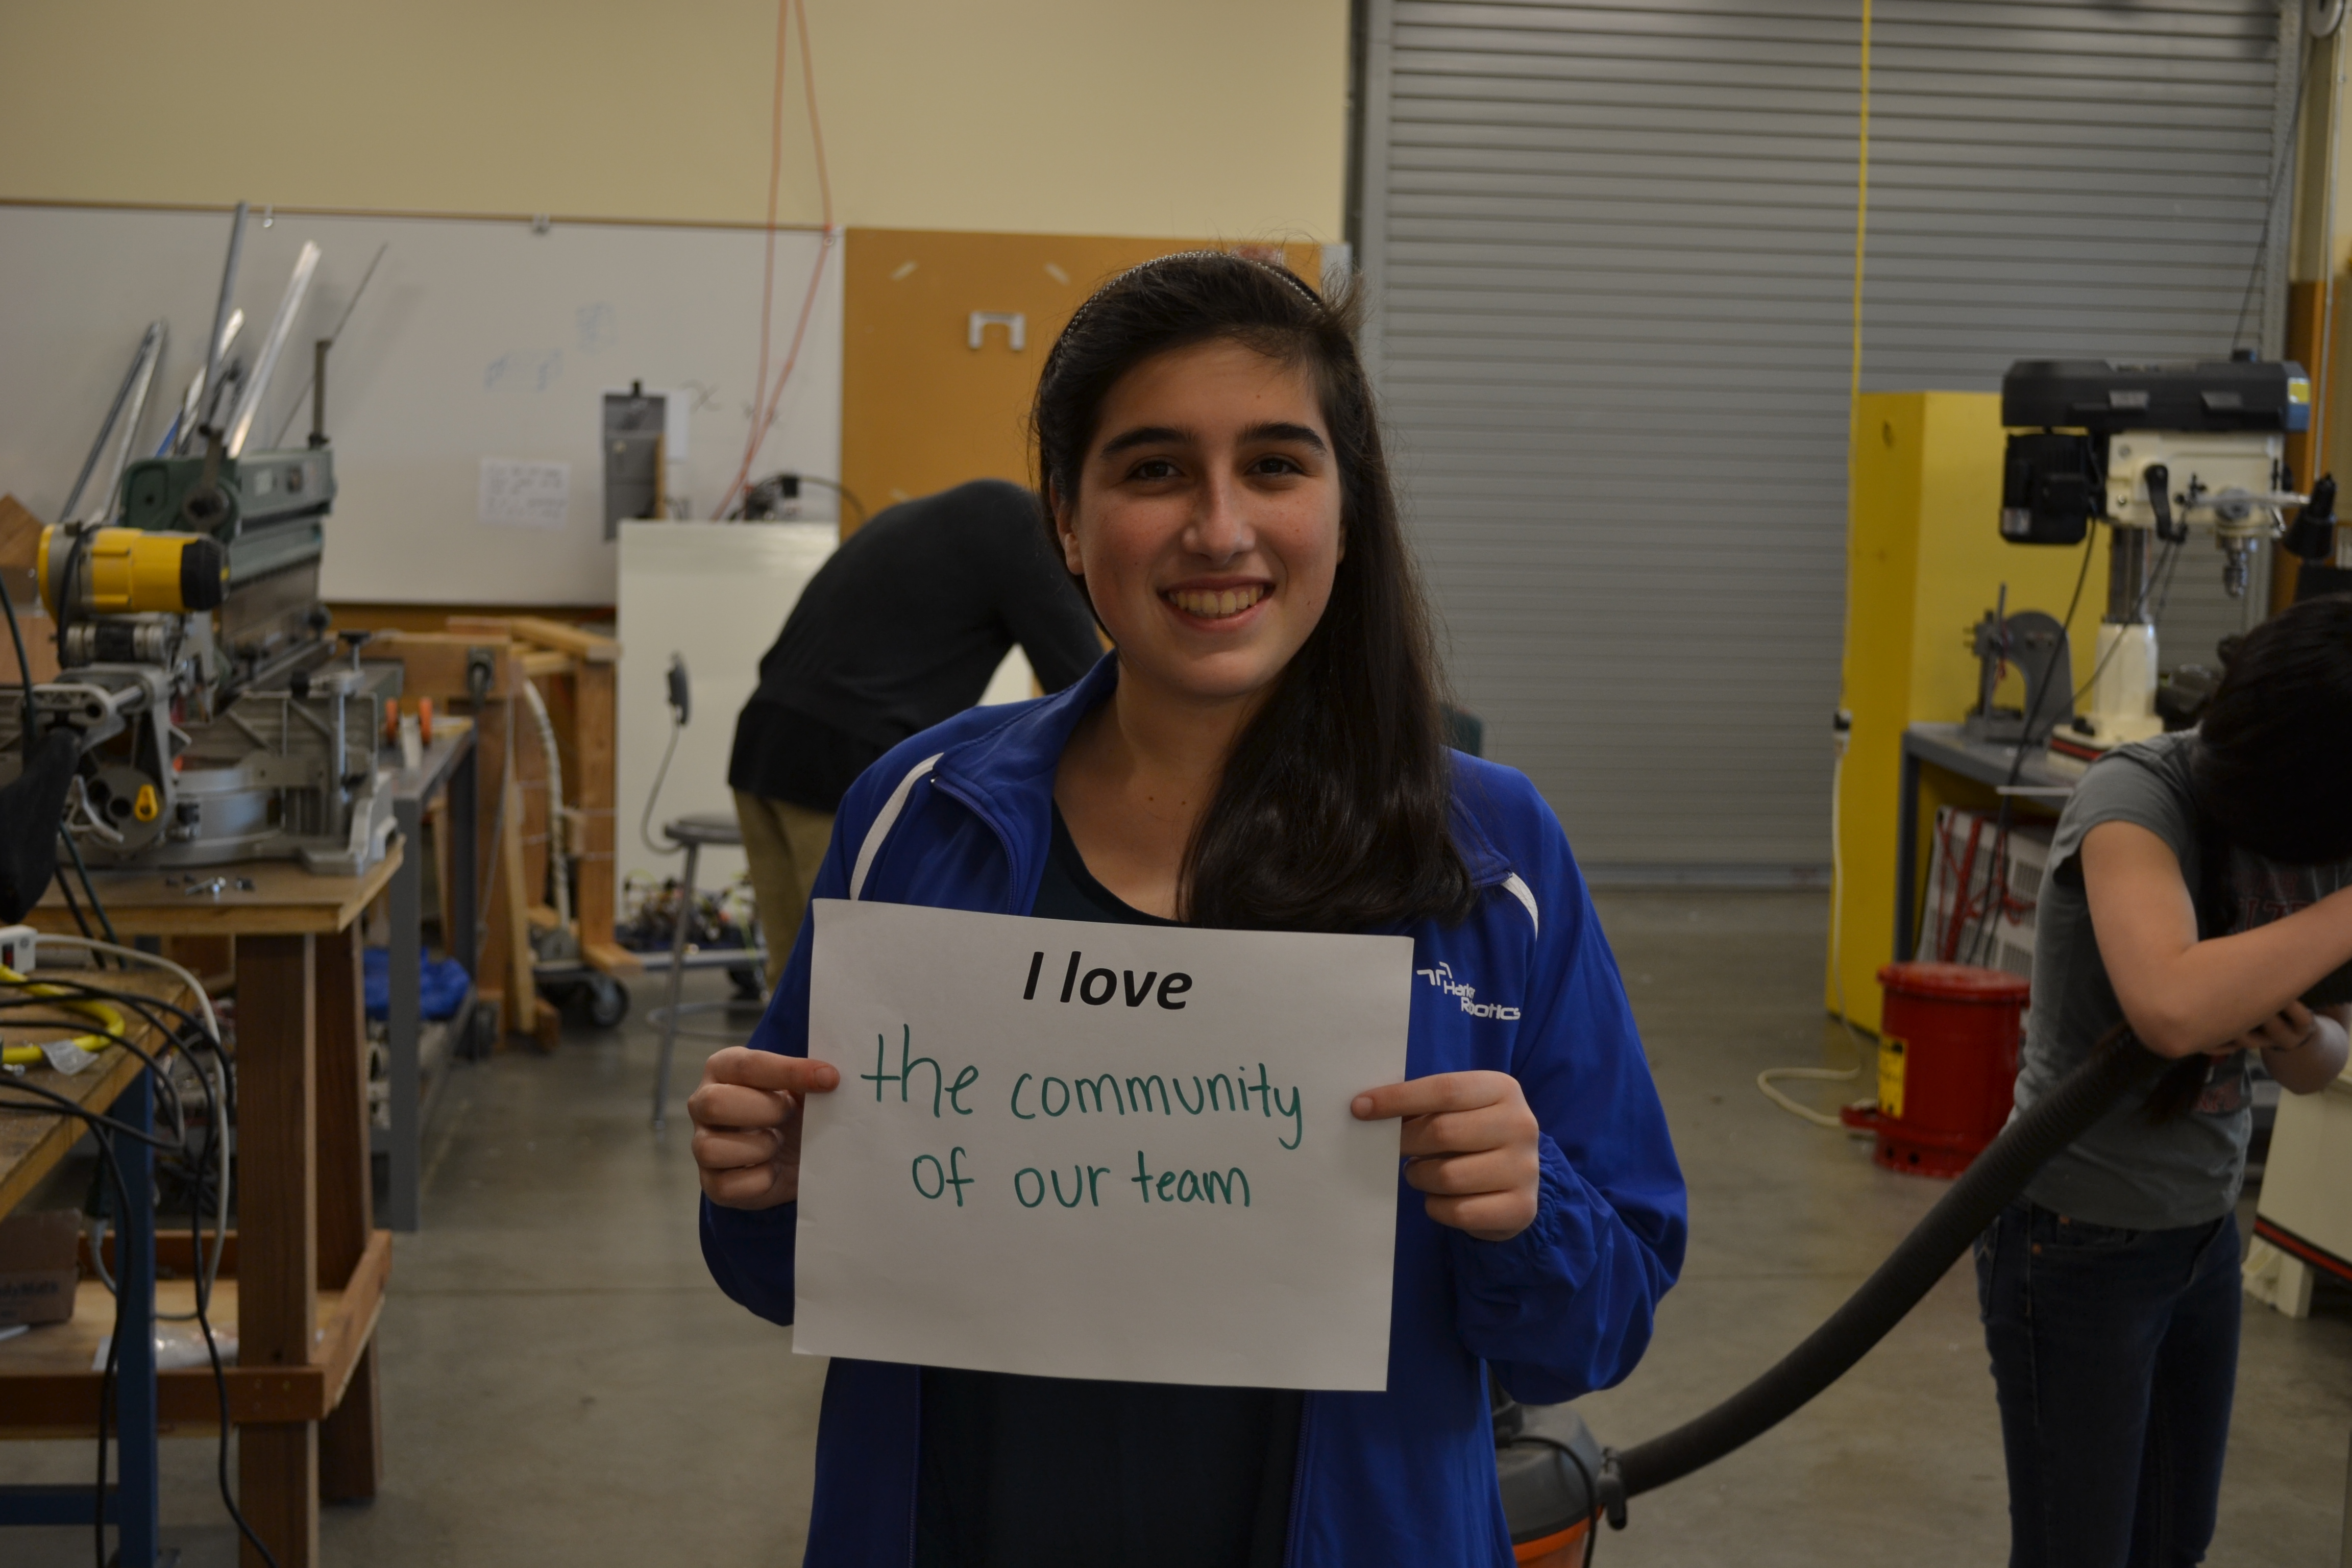 I love
the community
of our team
Harker
Robotics